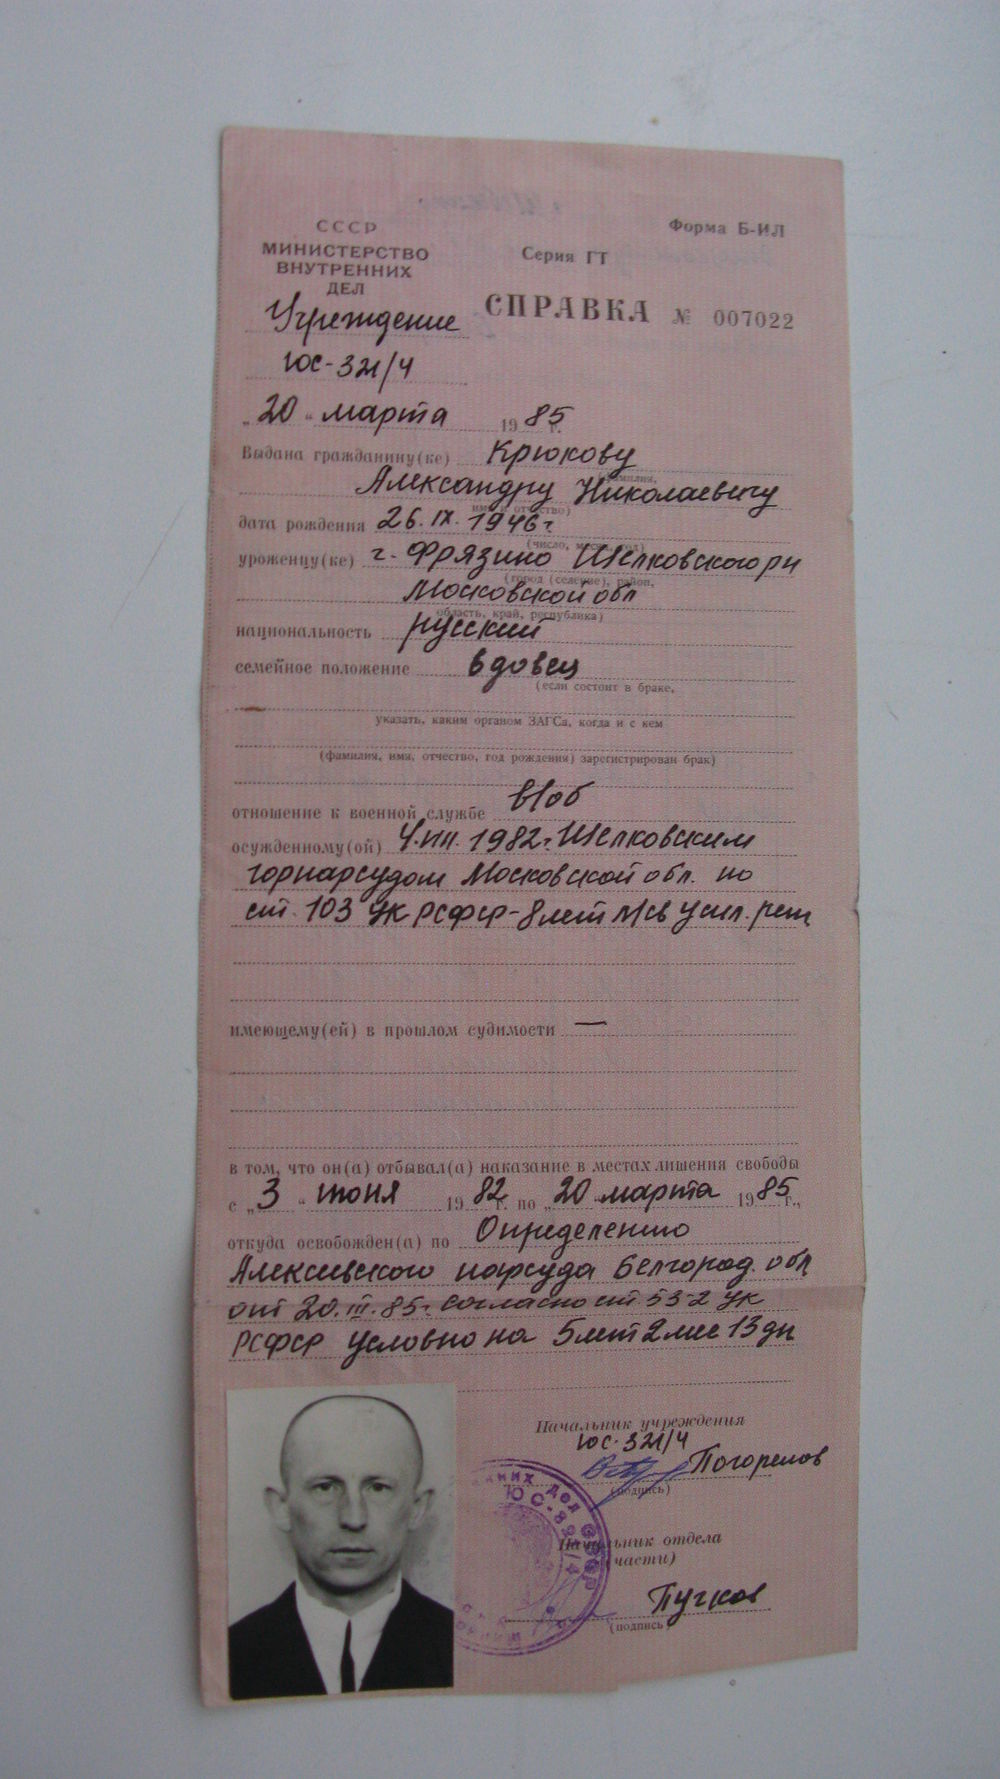 СССР
МИНИСТЕРСТВО
ВНУТРЕННИХ
ДЕЛ
Форма Б-ИЛ
Серия ГТ
СПРАВКА № 007022
Учреждение
ЮС-321/4
„20“ марта 1985 г.
Выдана гражданину(ке) Крюкову
фамилия,
Александру Николаевичу
имя и отчество)
дата рождения 26.IX.1946г
(число,
уроженцу(ке) г. Фрязино Щелковского рн
(город (селение), район,
Московской обл
область, край, республика)
национальность русский
семейное положение вдовец
(если состоит в браке,
указать, каким органом ЗАГСа, когда и с кем
(фамилия, имя, отчество, год рождения) зарегистрирован брак)
отношение к военной службе в/об
осужденному(ой) 4.VIII.1982г. Щелковским
горнарсудом Московской обл. по
ст. 103 УК РСФСР-8лет л/св усил. реж
имеющему(ей) в прошлом судимости —
в том, что он(а) отбывал(а) наказание в местах лишения свободы
с „3“ июня 1982 г. по „20“ марта 1985 г.,
откуда освобожден(а) по Определению
Алексеевского нарсуда Белгород. обл
от 20.III.85г. согласно ст 53-2 УК
РСФСР условно на 5лет 2мес 13дн
Начальник учреждения
ЮС-321/4
Погорелов
(подпись)
Начальник отдела
(части)
Пучков
(подпись)
дел СССР